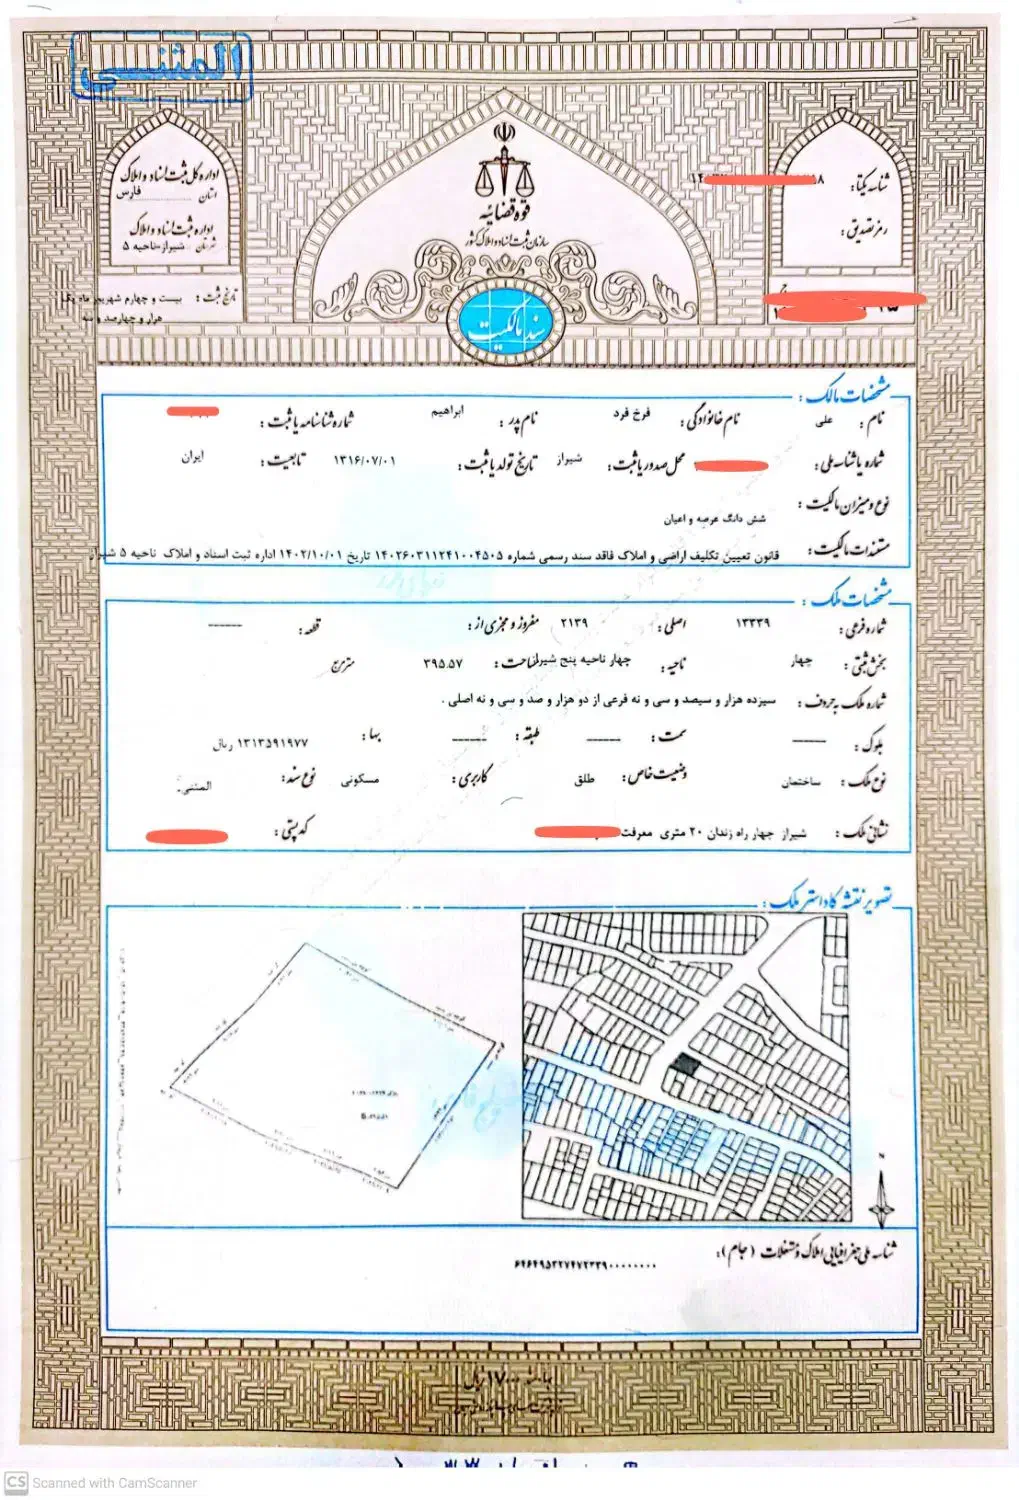 المثنی
اداره کل ثبت اسناد و املاک
استان فارس
اداره ثبت اسناد و املاک
شهرستان شیراز-ناحیه ۵
تاریخ ثبت : بیست و چهارم شهریور ماه یک
هزار و چهارصد و سه
قوه قضائیه
سازمان ثبت اسناد و املاک کشور
سند مالکیت
شناسه یکتا:
رمز تصدیق :
مشخصات مالک :
نام : علی نام خانوادگی : فرخ فرد نام پدر : ابراهیم شماره شناسنامه یا ثبت :
شماره یا شناسه ملی : محل صدور یا ثبت : شیراز تاریخ تولد یا ثبت : ۱۳۱۶/۰۷/۰۱ تابعیت : ایران
نوع و میزان مالکیت : شش دانگ عرصه و اعیان
مستندات مالکیت : قانون تعیین تکلیف اراضی و املاک فاقد سند رسمی شماره ۱۴۰۲۶۰۳۱۱۲۴۱۰۰۴۵۰۵ تاریخ ۱۴۰۲/۱۰/۰۱ اداره ثبت اسناد و املاک ناحیه ۵ شیراز
مشخصات ملک :
شماره فرعی : ۱۳۳۳۹ اصلی : ۲۱۳۹ مفروز و مجزی از : قطعه : ------
بخش ثبتی : چهار ناحیه : چهار ناحیه پنج شیراز مساحت : ۳۹۵.۵۷ مترمربع
شماره ملک به حروف : سیزده هزار و سیصد و سی و نه فرعی از دو هزار و صد و سی و نه اصلی .
بلوک : ------ سمت : ------ طبقه : ------ بها : ۱۳۱۳۵۹۱۹۷۷ ریال
نوع ملک : ساختمان وضعیت خاص : طلق کاربری : مسکونی نوع سند : المثنی
نشانی ملک : شیراز چهار راه زندان ۲۰ متری معرفت کد پستی :
تصویر نقشه کاداستر ملک :
شناسه ملی جغرافیایی املاک و مستغلات ( جام ) :
۶۴۶۴۹۵۳۲۷۴۷۲۳۳۹۰۰۰۰۰۰۰۰
بها ۱۷۰۰۰ ریال
CS Scanned with CamScanner